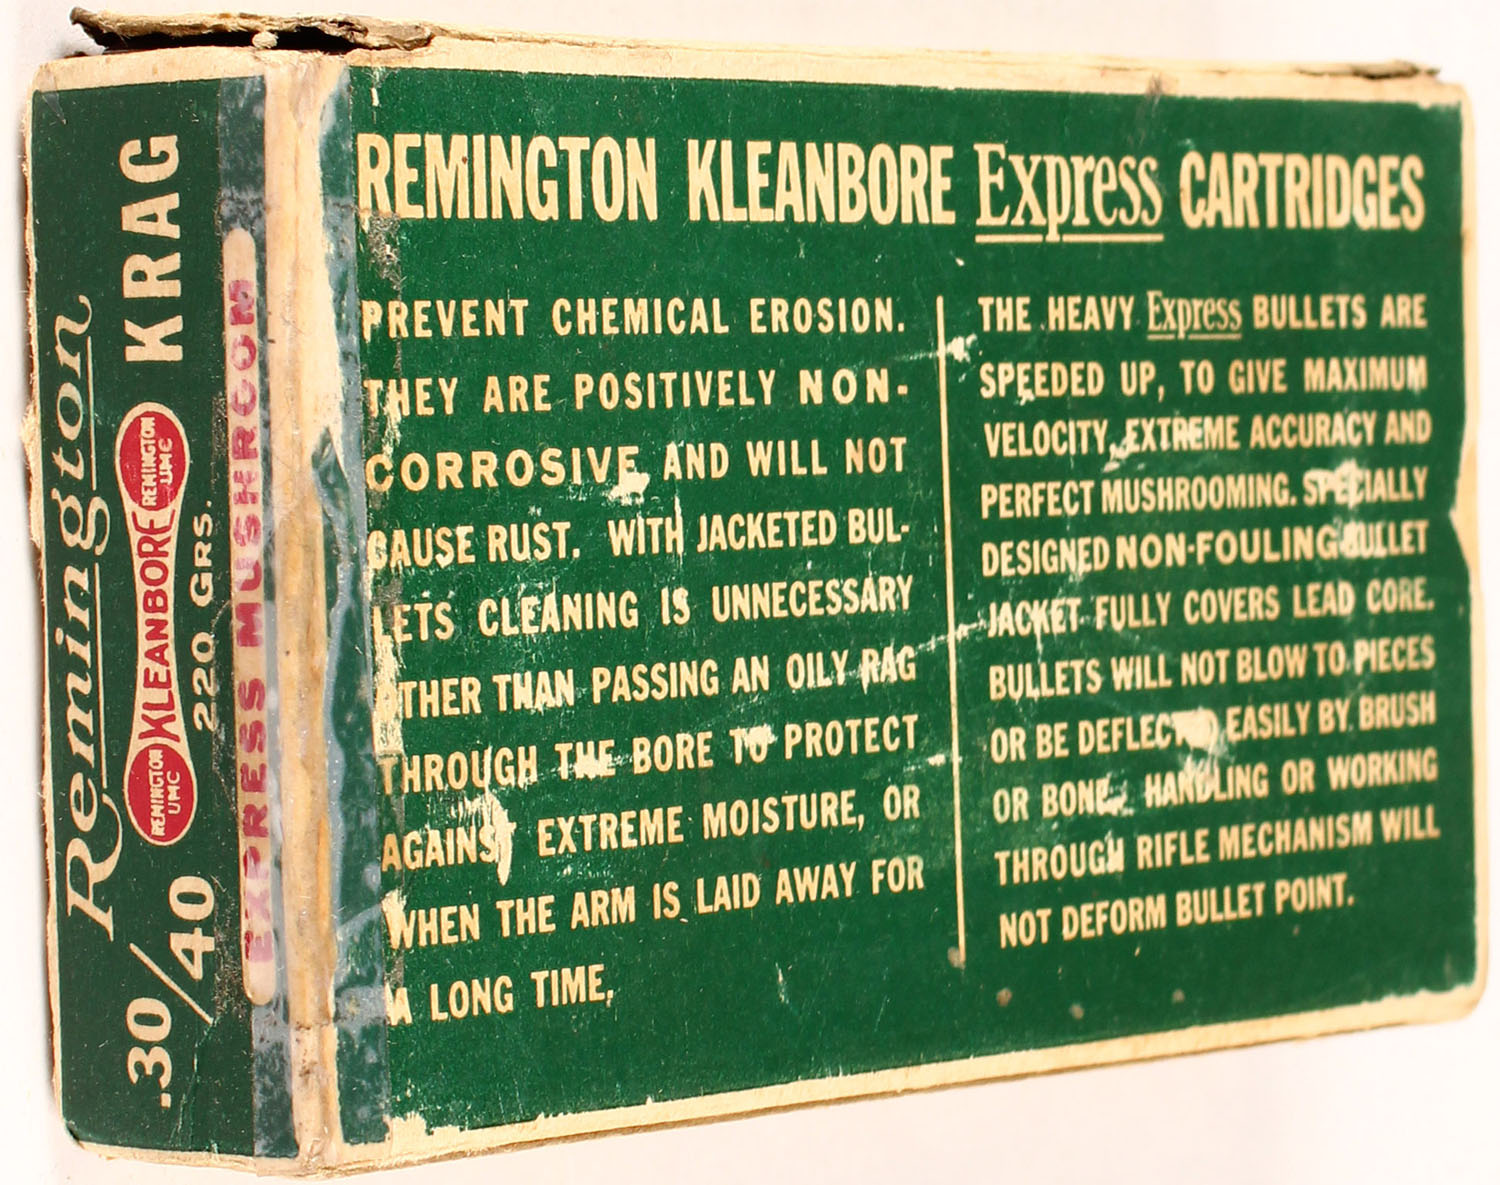 REMINGTON KLEANBORE Express CARTRIDGES
PREVENT CHEMICAL EROSION.
THEY ARE POSITIVELY NON-
CORROSIVE AND WILL NOT
CAUSE RUST. WITH JACKETED BUL-
LETS CLEANING IS UNNECESSARY
OTHER THAN PASSING AN OILY RAG
THROUGH THE BORE TO PROTECT
AGAINST EXTREME MOISTURE, OR
WHEN THE ARM IS LAID AWAY FOR
A LONG TIME.
THE HEAVY Express BULLETS ARE
SPEEDED UP, TO GIVE MAXIMUM
VELOCITY, EXTREME ACCURACY AND
PERFECT MUSHROOMING. SPECIALLY
DESIGNED NON-FOULING BULLET
JACKET FULLY COVERS LEAD CORE.
BULLETS WILL NOT BLOW TO PIECES
OR BE DEFLECTED EASILY BY BRUSH
OR BONE. HANDLING OR WORKING
THROUGH RIFLE MECHANISM WILL
NOT DEFORM BULLET POINT.
Remington
.30/40 REMINGTON UMC KLEANBORE REMINGTON UMC KRAG
220 GRS.
EXPRESS MUSHROOM